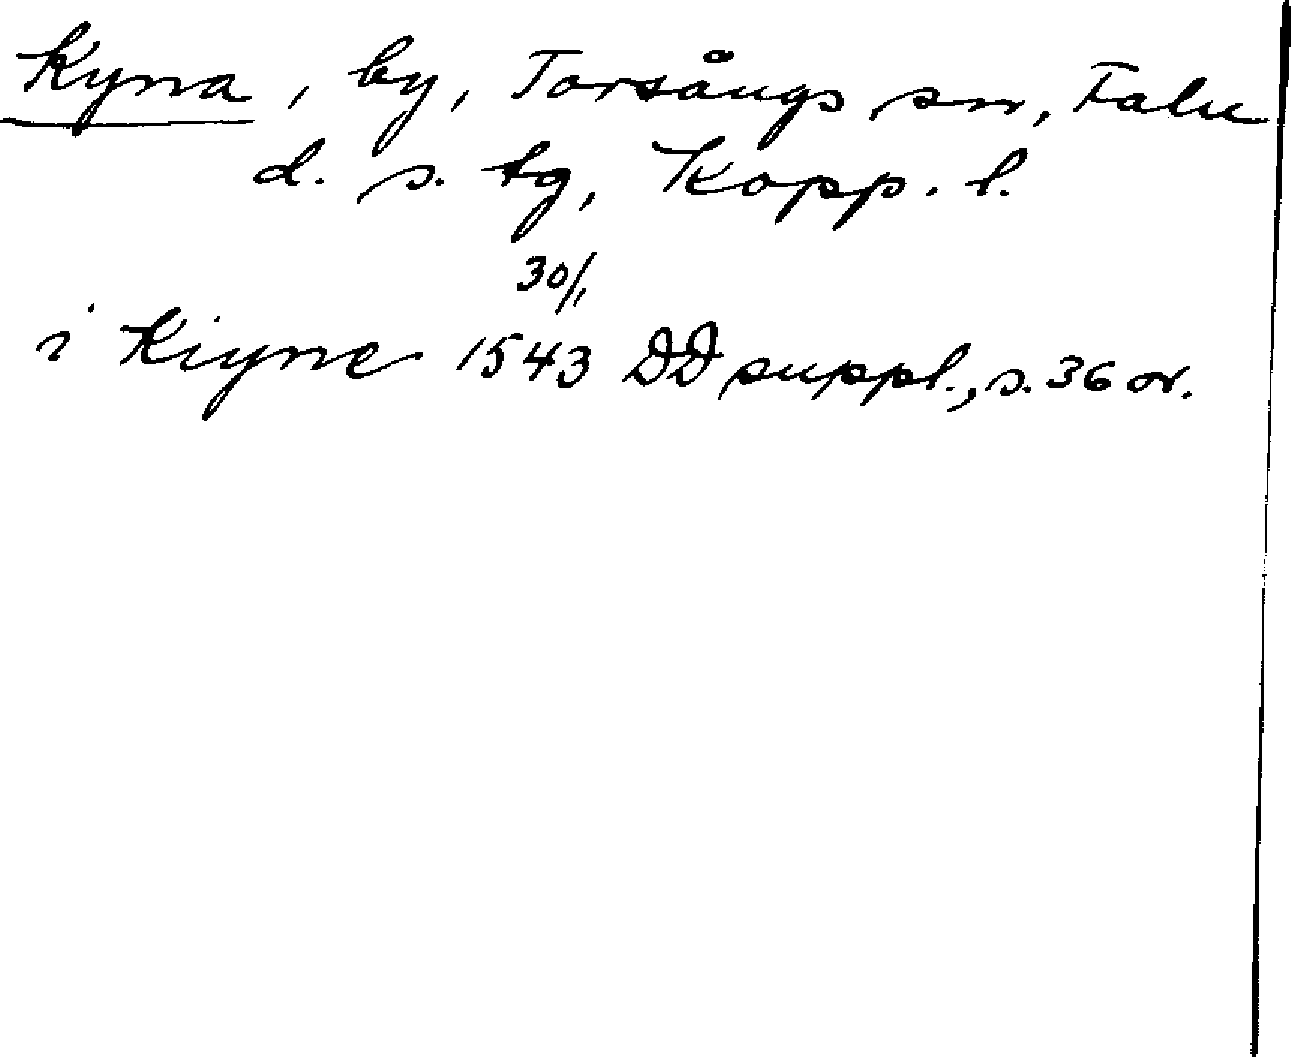 Kyna, by, Torsångs sn, Falu
d. s. tg, Kopp. l.
30/1
i Kiyne 1543 DD suppl., s. 36 or.